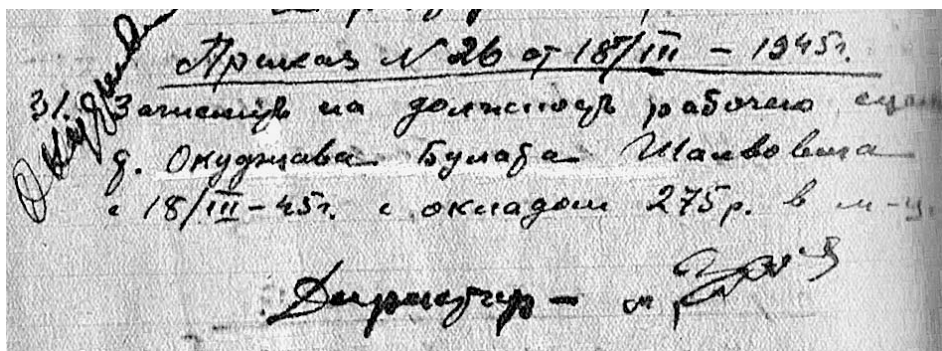 Приказ N 26 от 18/III – 1945г.
31. Зачислить на должность рабочего сцен
т. Окуджава Булата Шалвовича
с 18/III-45г. с окладом 275р. в м-ц.
Директор –
Окуджава